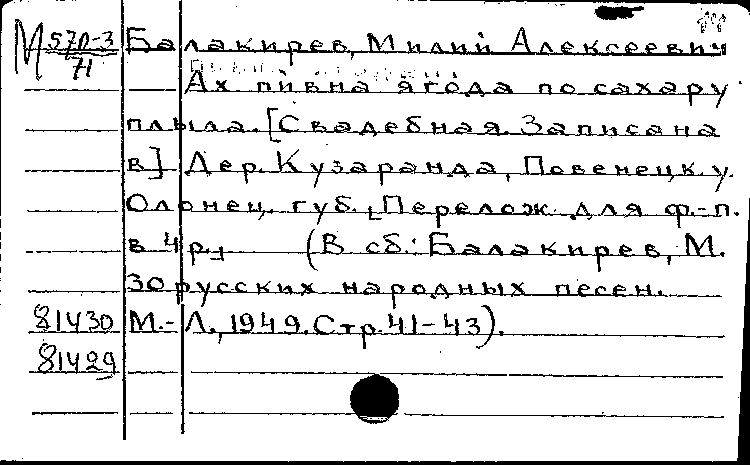 М 570-3 Балакирев, Милий Алексеевич
71
Ах пивна ягода по сахару
плыла. [Свадебная. Записана
в] Дер. Кузаранда, Повенецк. у.
Олонец. губ. [Перелож. для ф.-п.
в 4 р.] (В сб.: Балакирев, М.
30 русских народных песен.
81430 М.-Л., 1949. Стр. 41-43).
81429